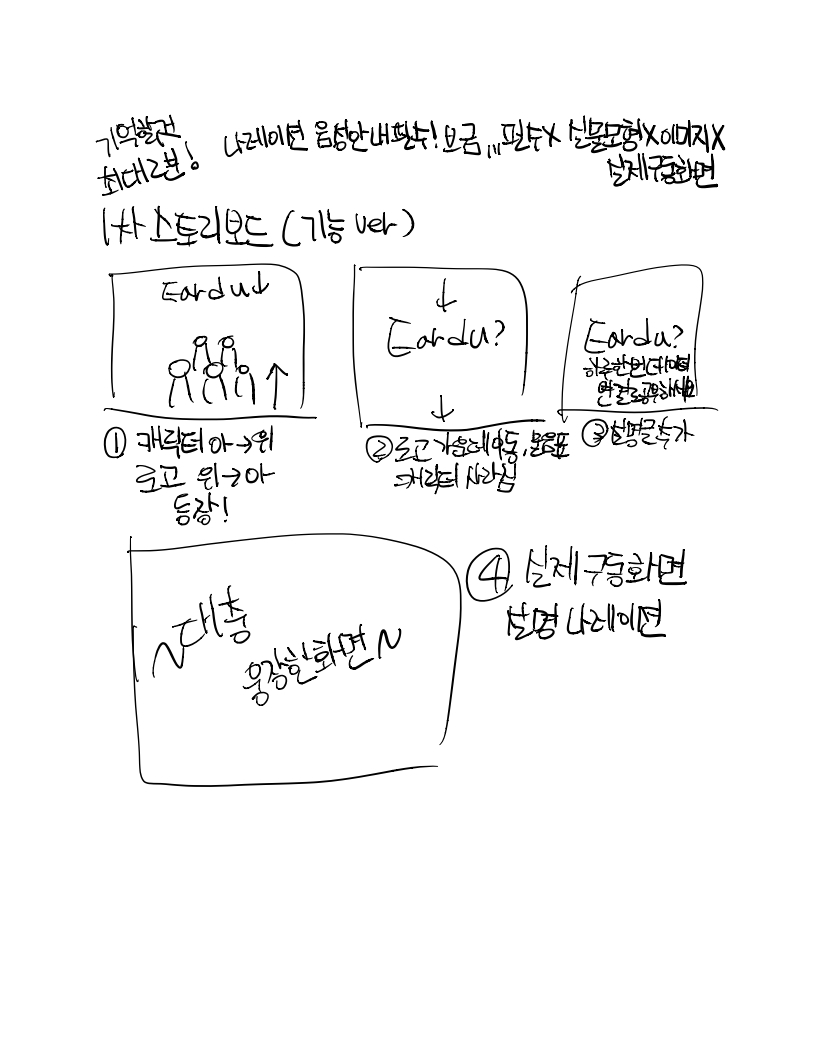 기억할건
최대2분!
나레이션 음성안내필수! 요금,,, 필수X 실물모형X이미지X
실제구동화면
1차 스토리보드 (기능 ver)
Eardu↓
① 캐릭터 아→위
로고 위→아
등장!
↓
Eardu?
↓
② 로고 가운데이동, 물음표
캐릭터 사라짐
Eardu?
하루한번
연결 공유하세요
③ 설명글추가
~대충
웅장한화면~
④ 실제구동화면
설명 나레이션